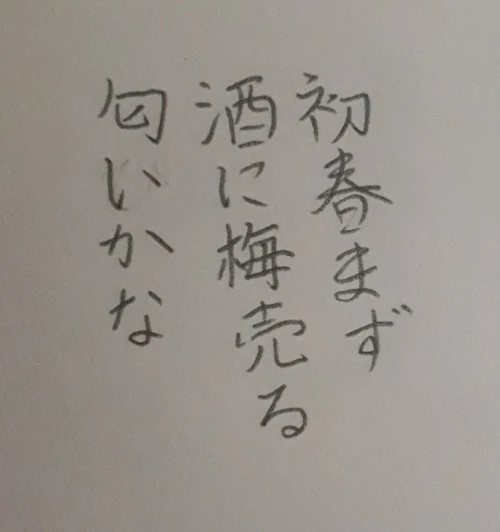 初春まず
酒に梅売る
匂いかな